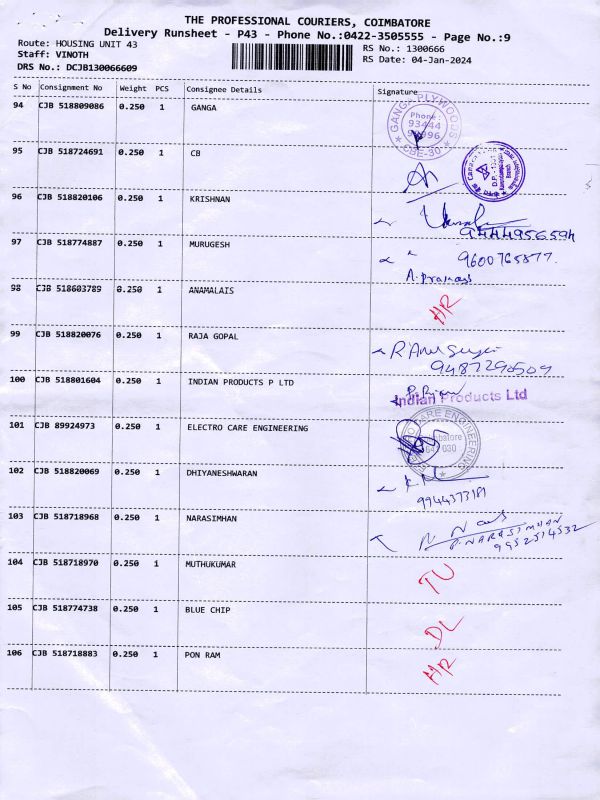 THE PROFESSIONAL COURIERS, COIMBATORE
Delivery Runsheet - P43 - Phone No.:0422-3505555 - Page No.:9
Route: HOUSING UNIT 43
Staff: VINOTH
DRS No.: DCJB130066609
RS No.: 1300666
RS Date: 04-Jan-2024
S No Consignment No Weight PCS Consignee Details Signature
94 CJB 518809086 0.250 1 GANGA
GANGA PLYWOODS
Phone :
93444
CBE-30
95 CJB 518724691 0.250 1 CB
96 CJB 518820106 0.250 1 KRISHNAN
9444956594
97 CJB 518774887 0.250 1 MURUGESH
9600765877
A. Prakash
98 CJB 518603789 0.250 1 ANAMALAIS
HR
99 CJB 518820076 0.250 1 RAJA GOPAL
9487290509
100 CJB 518801604 0.250 1 INDIAN PRODUCTS P LTD
Indian Products Ltd
101 CJB 89924973 0.250 1 ELECTRO CARE ENGINEERING
CARE ENGINEERING
Coimbatore
102 CJB 518820069 0.250 1 DHIYANESHWARAN
9944373181
103 CJB 518718968 0.250 1 NARASIMHAN
P. NARASIMHAN
9952514532
104 CJB 518718970 0.250 1 MUTHUKUMAR
TU
105 CJB 518774738 0.250 1 BLUE CHIP
DL
106 CJB 518718883 0.250 1 PON RAM
HR